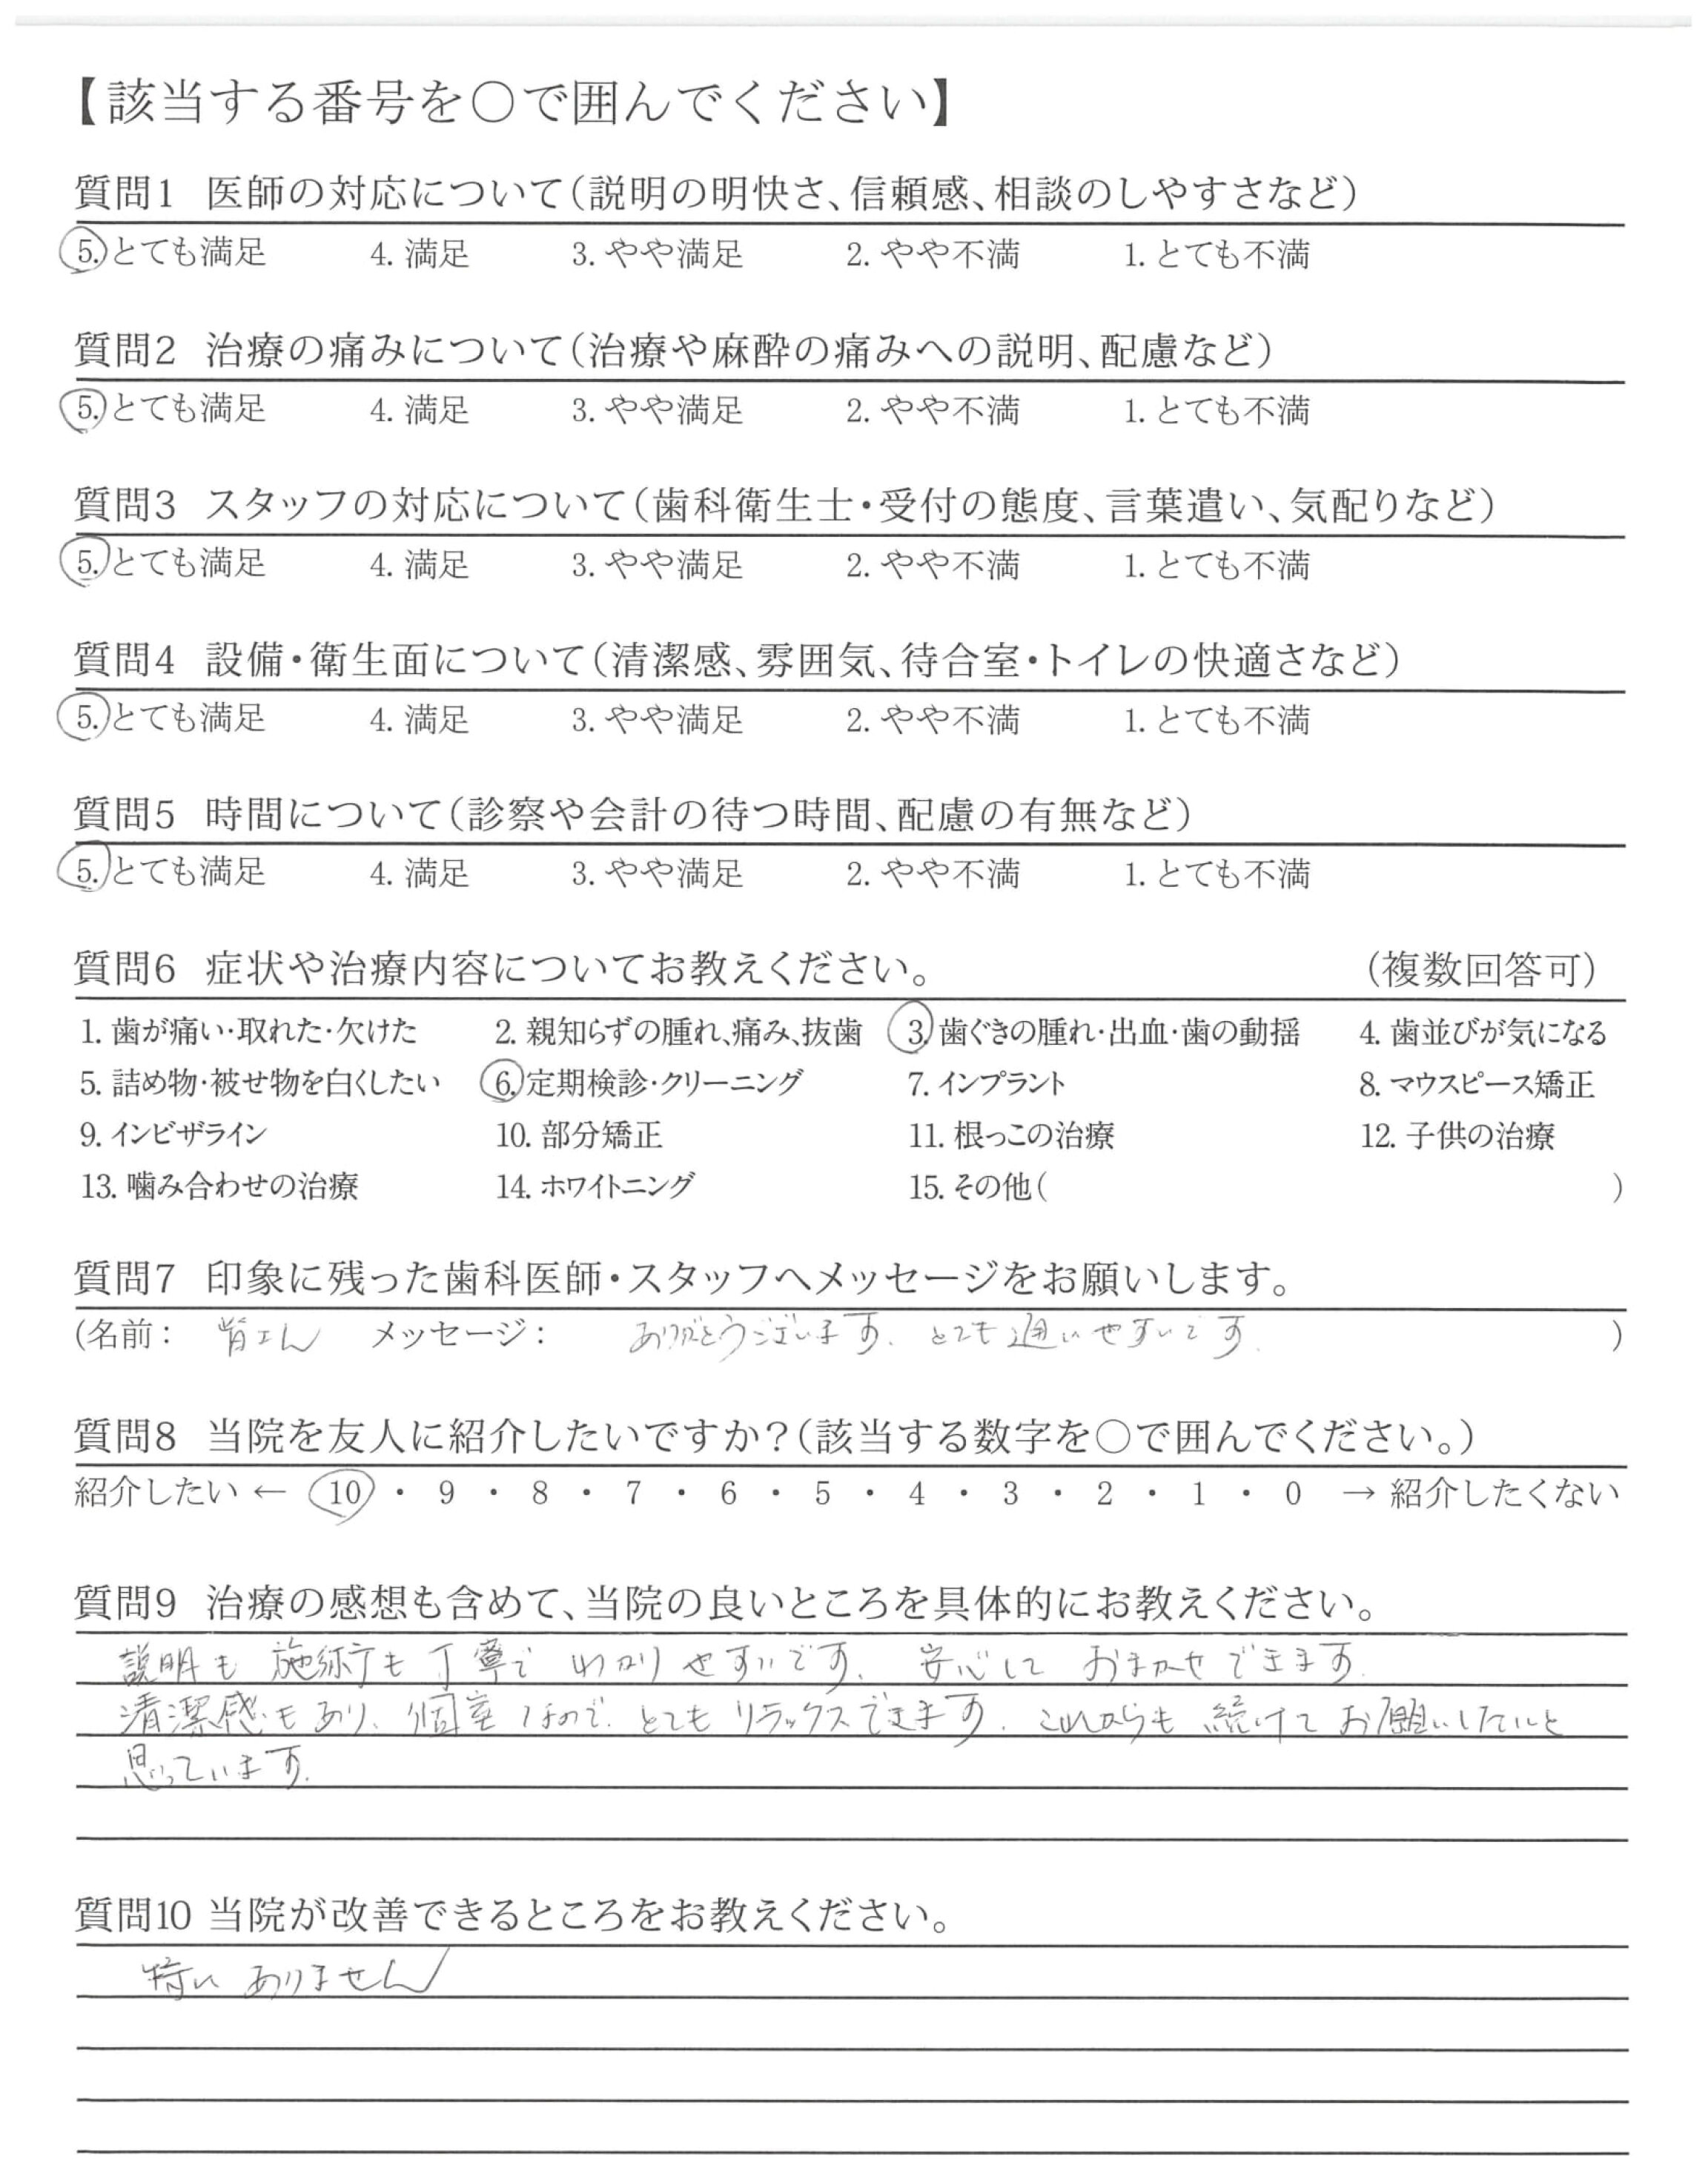 【該当する番号を○で囲んでください】
質問1 医師の対応について(説明の明快さ、信頼感、相談のしやすさなど)
5. とても満足 4. 満足 3. やや満足 2. やや不満 1. とても不満
質問2 治療の痛みについて(治療や麻酔の痛みへの説明、配慮など)
5. とても満足 4. 満足 3. やや満足 2. やや不満 1. とても不満
質問3 スタッフの対応について(歯科衛生士・受付の態度、言葉遣い、気配りなど)
5. とても満足 4. 満足 3. やや満足 2. やや不満 1. とても不満
質問4 設備・衛生面について(清潔感、雰囲気、待合室・トイレの快適さなど)
5. とても満足 4. 満足 3. やや満足 2. やや不満 1. とても不満
質問5 時間について(診察や会計の待つ時間、配慮の有無など)
5. とても満足 4. 満足 3. やや満足 2. やや不満 1. とても不満
質問6 症状や治療内容についてお教えください。 (複数回答可)
1. 歯が痛い・取れた・欠けた 2. 親知らずの腫れ、痛み、抜歯 3. 歯ぐきの腫れ・出血・歯の動揺 4. 歯並びが気になる
5. 詰め物・被せ物を白くしたい 6. 定期検診・クリーニング 7. インプラント 8. マウスピース矯正
9. インビザライン 10. 部分矯正 11. 根っこの治療 12. 子供の治療
13. 噛み合わせの治療 14. ホワイトニング 15. その他( )
質問7 印象に残った歯科医師・スタッフへメッセージをお願いします。
(名前: 皆さん メッセージ: ありがとうございます。とても通いやすいです。 )
質問8 当院を友人に紹介したいですか?(該当する数字を○で囲んでください。)
紹介したい ← 10 ・ 9 ・ 8 ・ 7 ・ 6 ・ 5 ・ 4 ・ 3 ・ 2 ・ 1 ・ 0 → 紹介したくない
質問9 治療の感想も含めて、当院の良いところを具体的にお教えください。
説明も 施術も 丁寧で わかりやすいです。 安心して おまかせできます。
清潔感もあり、個室なので、とても リラックスできます。これからも 続けて お願いしたいと
思っています。
質問10 当院が改善できるところをお教えください。
特に ありません